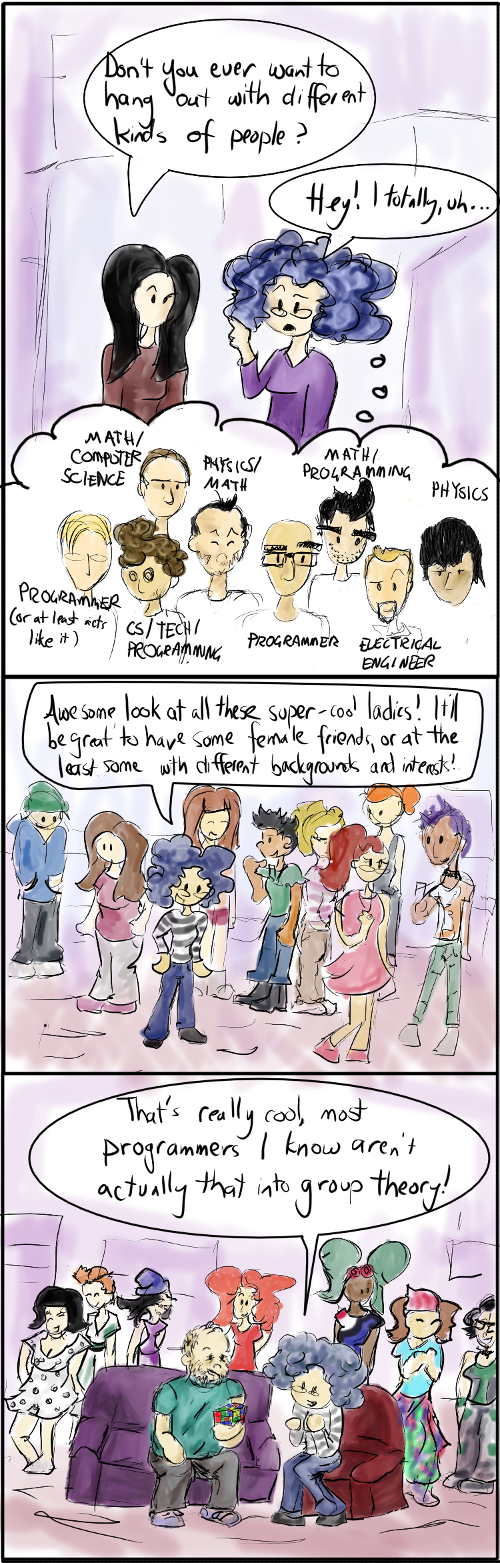 Don't you ever want to
hang out with different
kinds of people?
Hey! I totally, uh...
MATH/
COMPUTER
SCIENCE
PHYSICS/
MATH
MATH/
PROGRAMMING
PHYSICS
PROGRAMMER
(or at least acts
like it)
CS/TECH/
PROGRAMMING
PROGRAMMER
ELECTRICAL
ENGINEER
Awesome look at all these super-cool ladies! It'll
be great to have some female friends, or at the
least some with different backgrounds and interests!
That's really cool, most
programmers I know aren't
actually that into group theory!